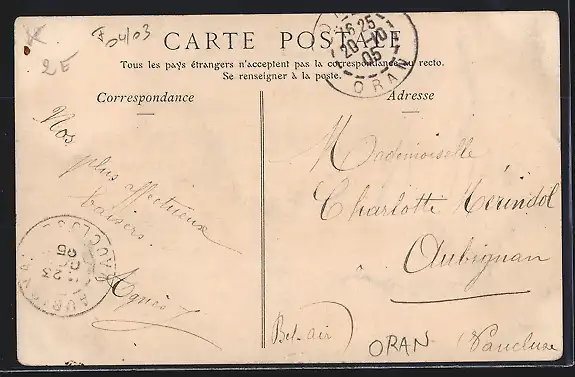 CARTE POSTALE
Tous les pays étrangers n'acceptent pas la correspondance au recto.
Se renseigner à la poste.
Correspondance
Nos
plus affectueux
baisers.
Agnès
Adresse
Mademoiselle
Charlotte Mérindol
Aubignan
(Vaucluse
Bel-air)
ORAN
2E
16 25
20-10
05
ORAN
23
05
VAUCLUSE